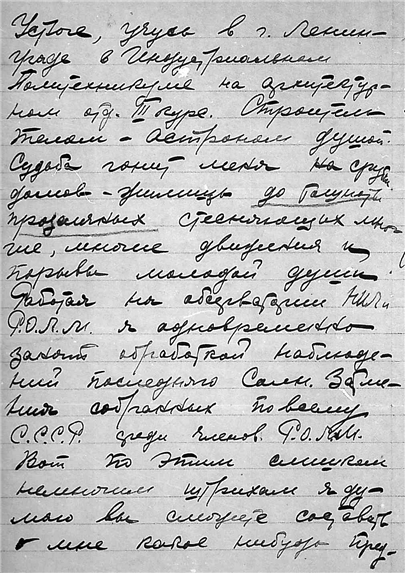 Устюге, учусь в г. Ленин-
граде в Индустриальном
Политехникуме на архитектур-
ном отд. II курс. Строитель
телом - астроном душой.
Судьба гонит меня на
домов - жилищ до тошноты
прозаичных стесняющих мно-
гие, многие движения и
порывы молодой души.
Работая на обсерватории
Р.О.Л.М. я одновременно
занят обработкой наблюде-
ний последнего Солн. Затме-
ния собранных по всему
С.С.С.Р. среди членов Р.О.Л.М.
Вот по этим слишком
немногим штрихам я ду-
маю вы сможете составить
о мне какое нибудь пред-